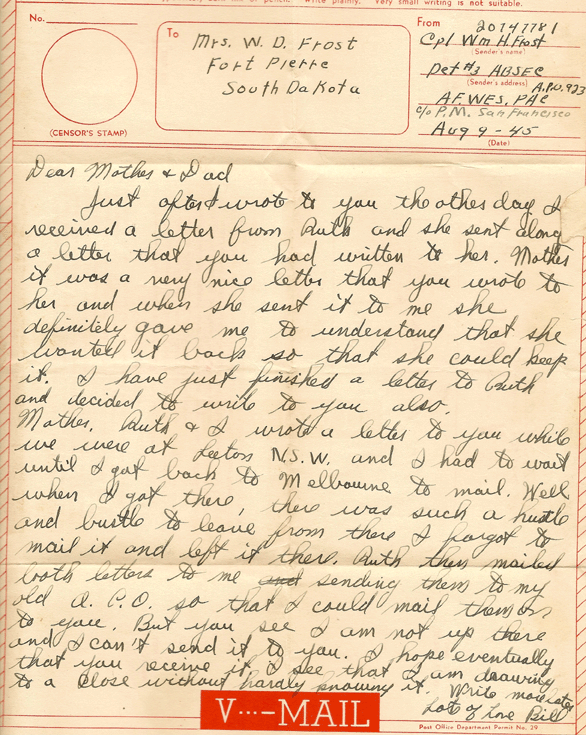 Very small writing is not suitable.
No.
(CENSOR'S STAMP)
To
Mrs. W. D. Frost
Fort Pierre
South Dakota
From
20747781
Cpl Wm H Frost
(Sender's name)
Det #3 ABSEC
(Sender's address)
A.P.O. 923
AF, WES, PAC
c/o P.M. San Francisco
Aug 9 - 45
(Date)
Dear Mother & Dad
Just after I wrote to you the other day I
received a letter from Ruth and she sent along
a letter that you had written to her. Mother
it was a very nice letter that you wrote to
her and when she sent it to me she
definitely gave me to understand that she
wanted it back so that she could keep
it. I have just finished a letter to Ruth
and decided to write to you also.
Mother, Ruth & I wrote a letter to you while
we were at Leeton N.S.W. and I had to wait
until I got back to Melbourne to mail. Well
when I got there, there was such a hustle
and bustle to leave from there I forgot to
mail it and left it there. Ruth then mailed
both letters to me and sending them to my
old A.P.O. so that I could mail them on
to you. But you see I am not up there
and I can't send it to you. I hope eventually
that you receive it. I see that I am drawing
to a close without hardly knowing it. Write more later
Lots of Love Bill
V···-MAIL
Post Office Department Permit No. 29